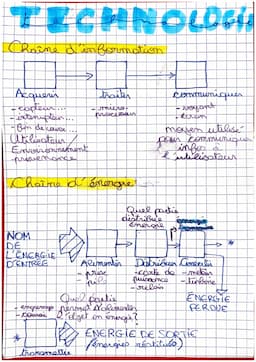 TECHNOLOGIE
Chaîne d'information
Acquérir traiter communiquer
- capteur... - micro- - voyant
- interrupteur... processeur - écran
- Fin de course...
Utilisateur / moyen utilisé
Environnement pour communiquer
provenance l'infos à
l'utilisateur
Chaîne d'énergie
Quel partie
distribue
énergie
NOM
DE
L'ÉNERGIE
D'ENTRÉE
Alimenter Distribuer Convertir
- prise - carte de - moteur
- pile puissance - turbine
- relais
Quel partie
permet d'alimenter
l'objet en énergie?
ÉNERGIE
PERDUE
- engrenage
transmettre
ÉNERGIE DE SORTIE
(énergies restituées)